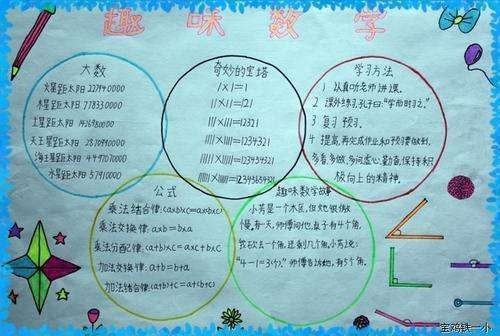 趣味数学
大数
火星距太阳 227940000
木星距太阳 778330000
土星距太阳 1429400000
天王星距太阳 2870990000
海王星距太阳 4497070000
水星距太阳 57910000
奇妙的宝塔
1×1=1
11×11=121
111×111=12321
1111×1111=1234321
11111×11111=123454321
111111×111111=12345654321
学习方法
1 认真听老师讲课。
2 课外练习,孔子曰:"学而时习之。"
3 复习 预习。
4 提高,再完成作业和预习要做到,
多看多做,多问虚心,勤奋,保持积
极向上的精神。
公式
乘法结合律:(a×b)×c=a×(b×c)
乘法交换律:a×b=b×a
乘法分配律:(a+b)×c=a×c+b×c
加法交换律:a+b=b+a
加法结合律:(a+b)+c=a+(b+c)
趣味数学故事
小芳是一个木匠,但她很傲
慢,有一天,师傅问他,桌子有4个角,
我砍去一个角,还剩几个角,小芳说:
"4-1=3个,"师傅告诉他,有5个角。
宝鸡铁一小